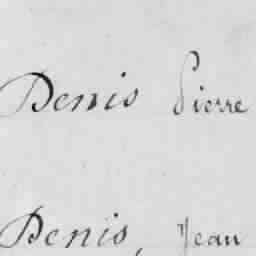 Denis Pierre
Denis, Jean